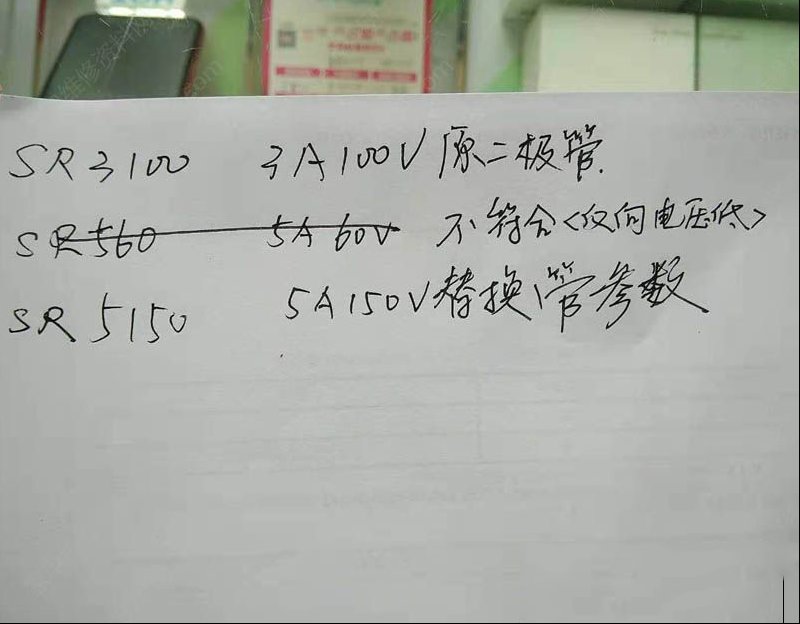 SR3100 3A100V原二极管.
SR560 5A60V 不符合<反向电压低>
SR5150 5A150V替换管参数